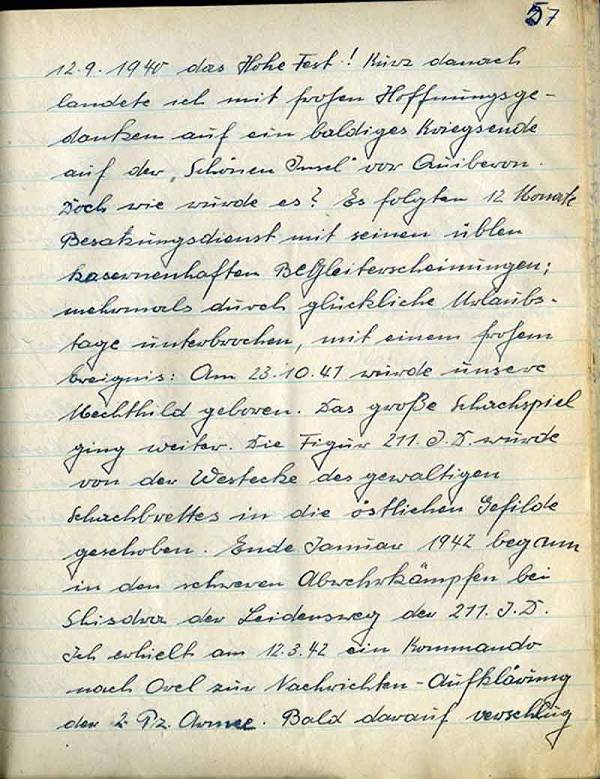 57
12.9.1940 das Hohe Fest! Kurz danach
landete ich mit frohen Hoffnungsge-
danken auf ein baldiges Kriegsende
auf der „Schönen Insel" vor Quiberon.
Doch wie wurde es? Es folgten 12 Monate
Besatzungsdienst mit seinen üblen
kasernenhaften Begleiterscheinungen;
mehrmals durch glückliche Urlaubs-
tage unterbrochen, mit einem frohem
Ereignis: Am 23.10.41 wurde unsere
Mechthild geboren. Das große Schachspiel
ging weiter. Die Figur 211. I.D. wurde
von der Westecke des gewaltigen
Schachbrettes in die östlichen Gefilde
geschoben. Ende Januar 1942 begann
in den schweren Abwehrkämpfen bei
Shisdra der Leidensweg der 211. I.D.
Ich erhielt am 12.3.42 ein Kommando
nach Orel zur Nachrichten-Aufklärung
der 2. Pz. Armee. Bald darauf verschlug